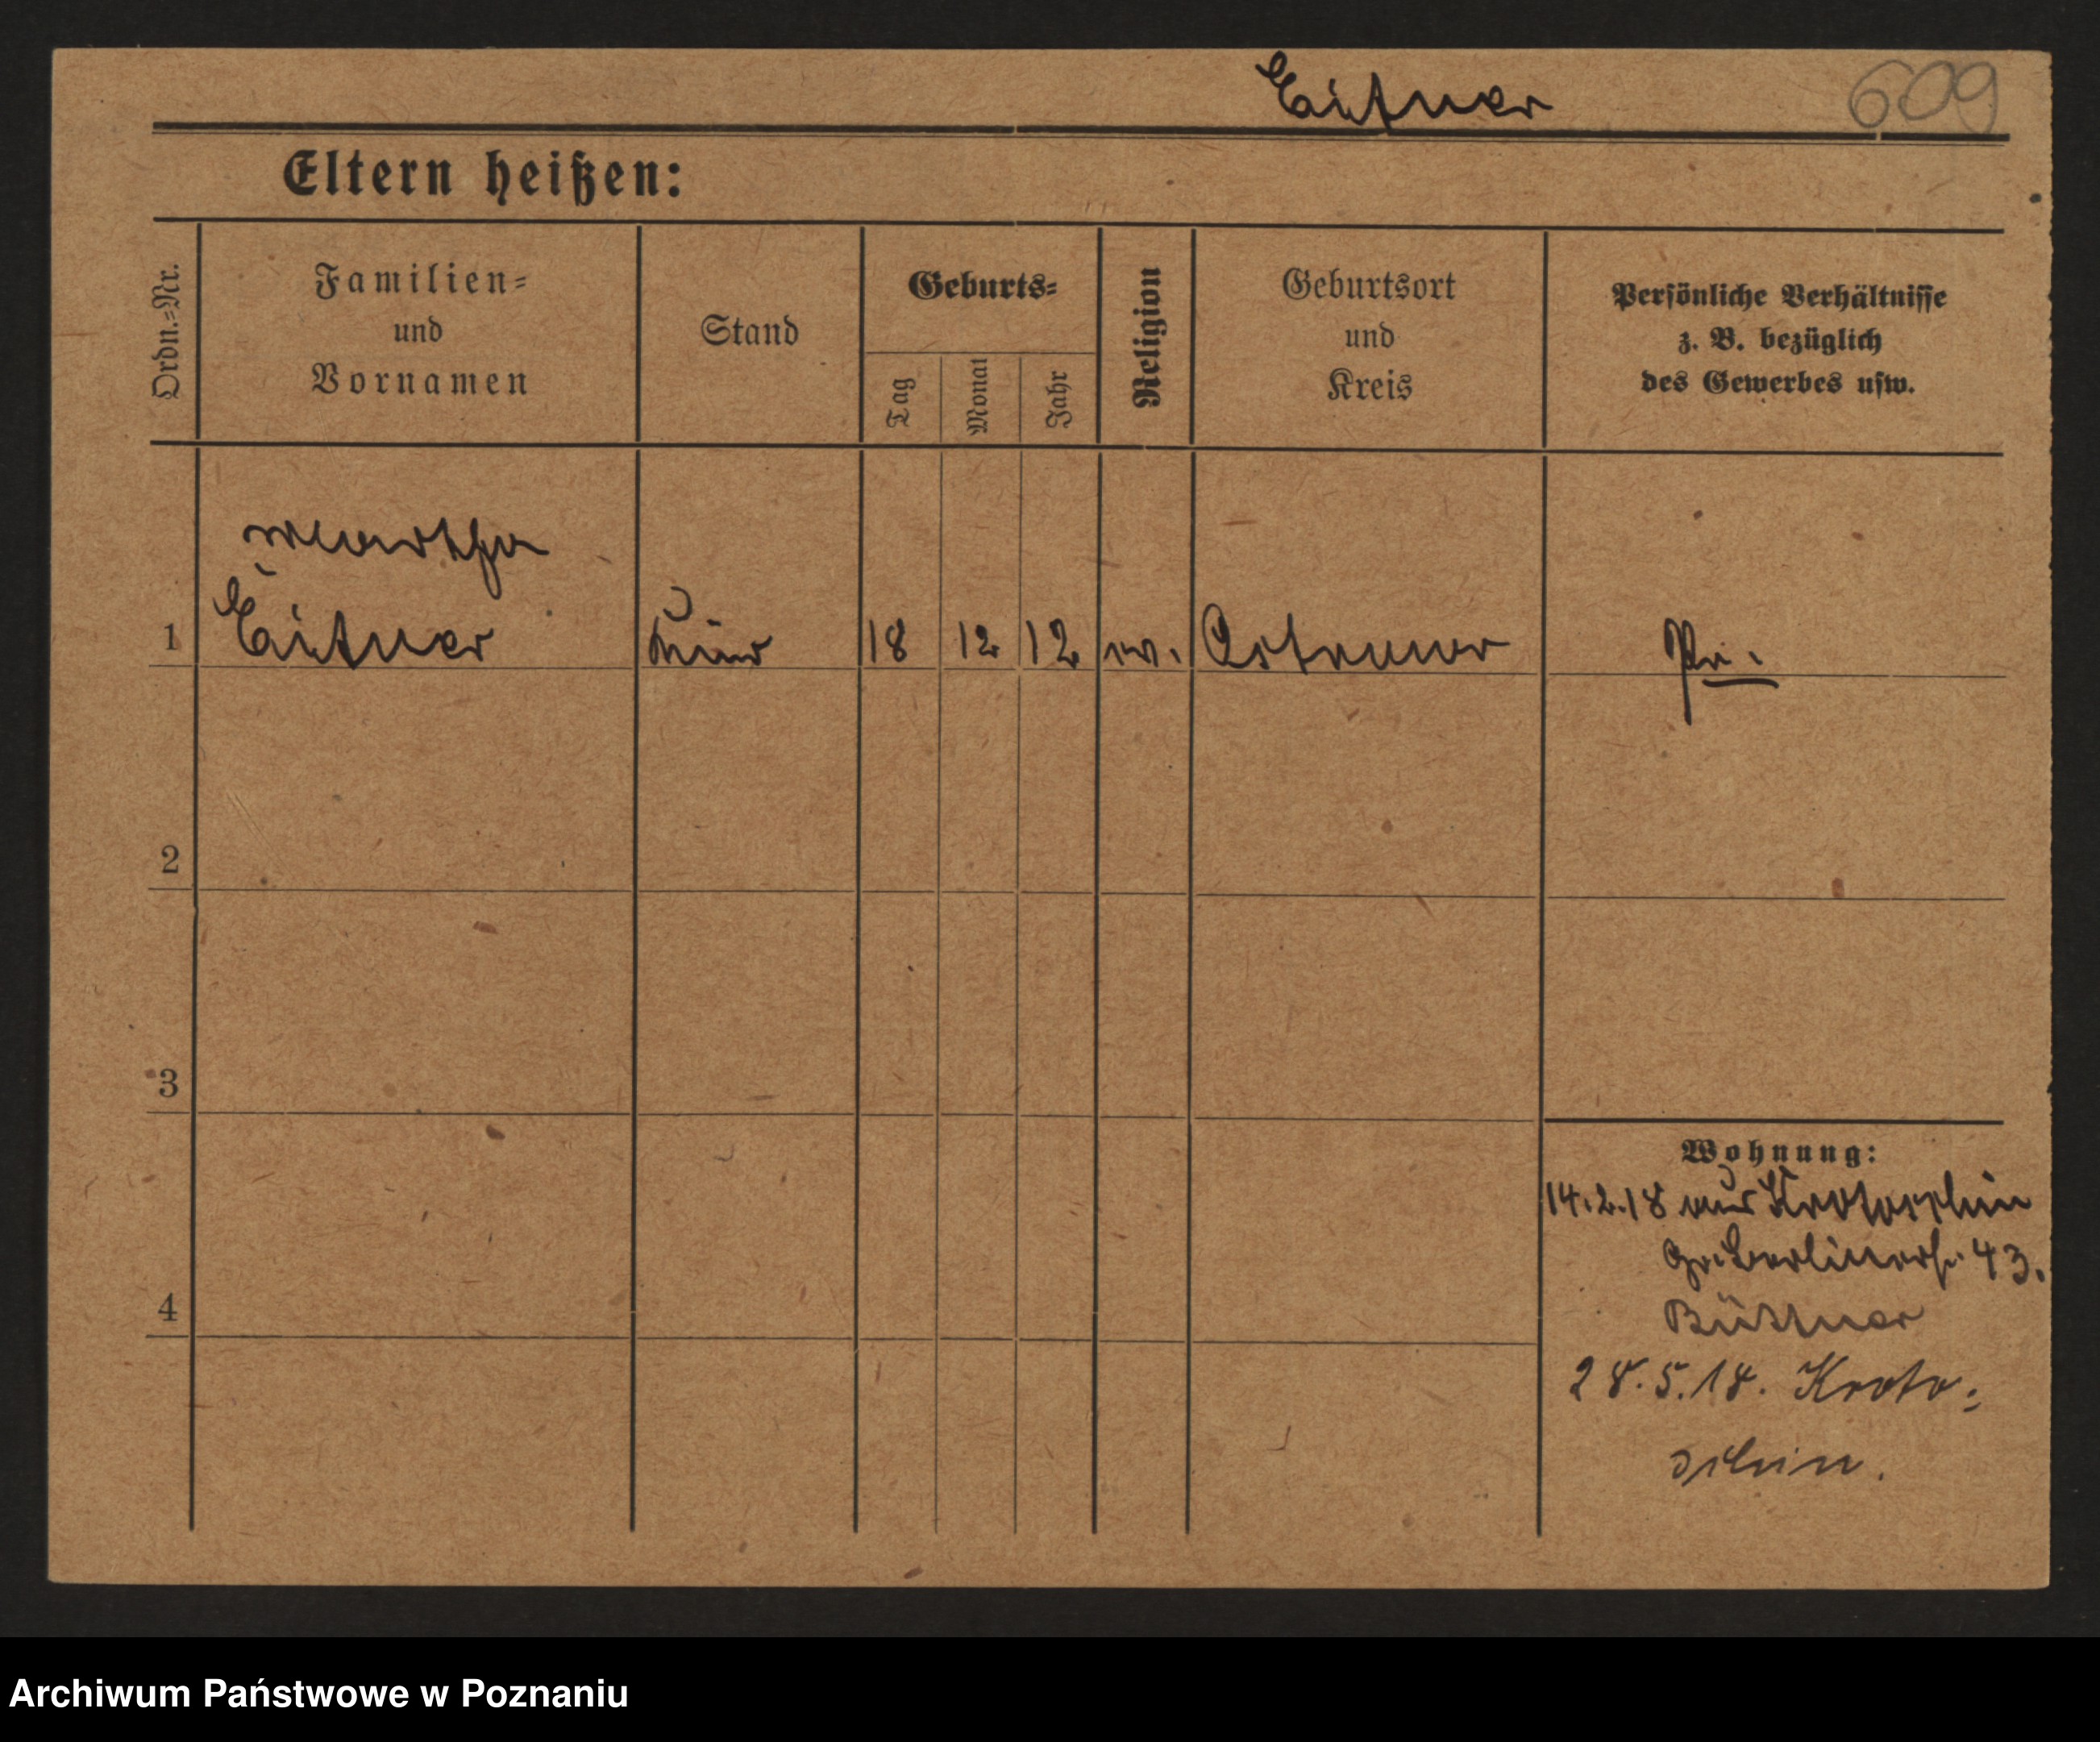 Eitner 609
Eltern heißen:
Ordn.-Nr.
Familien-
und
Vornamen
Stand
Geburts-
Tag
Monat
Jahr
Religion
Geburtsort
und
Kreis
Persönliche Verhältnisse
z. B. bezüglich
des Gewerbes usw.
Martha
1 Eitner 18 12 12 Ostrower Pr.
2
3
4
Wohnung:
14.2.18 aus Krotoschin
Gr. Berlinerstr. 43.
Büttner
28.5.18. Kroto-
schin.
Archiwum Państwowe w Poznaniu